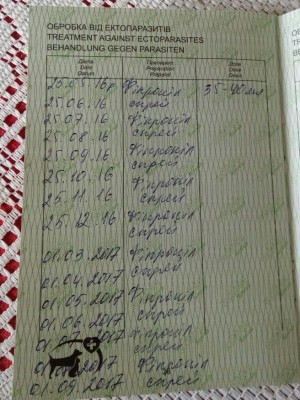 ОБРОБКА ВІД ЕКТОПАРАЗИТІВ
TREATMENT AGAINST ECTOPARASITES
BEHANDLUNG GEGEN PARASITEN
Дата Препарат Доза
Date Preparation Dose
Datum Präparat Dosis
25.05.16р Фіпроніл 35-40мл
25.06.16 спрей
25.07.16 Фіпроніл
25.08.16 спрей
25.09.16 Фіпроніл
спрей
25.10.16 Фіпроніл
25.11.16 спрей
25.12.16 Фіпроніл
спрей
01.03.2017 Фіпроніл
спрей
01.04.2017
01.05.2017 Фіпроніл
01.06.2017 спрей
01.07.2017 Фіпроніл
спрей
2017 Фіпроніл
01.09.2017 спрей